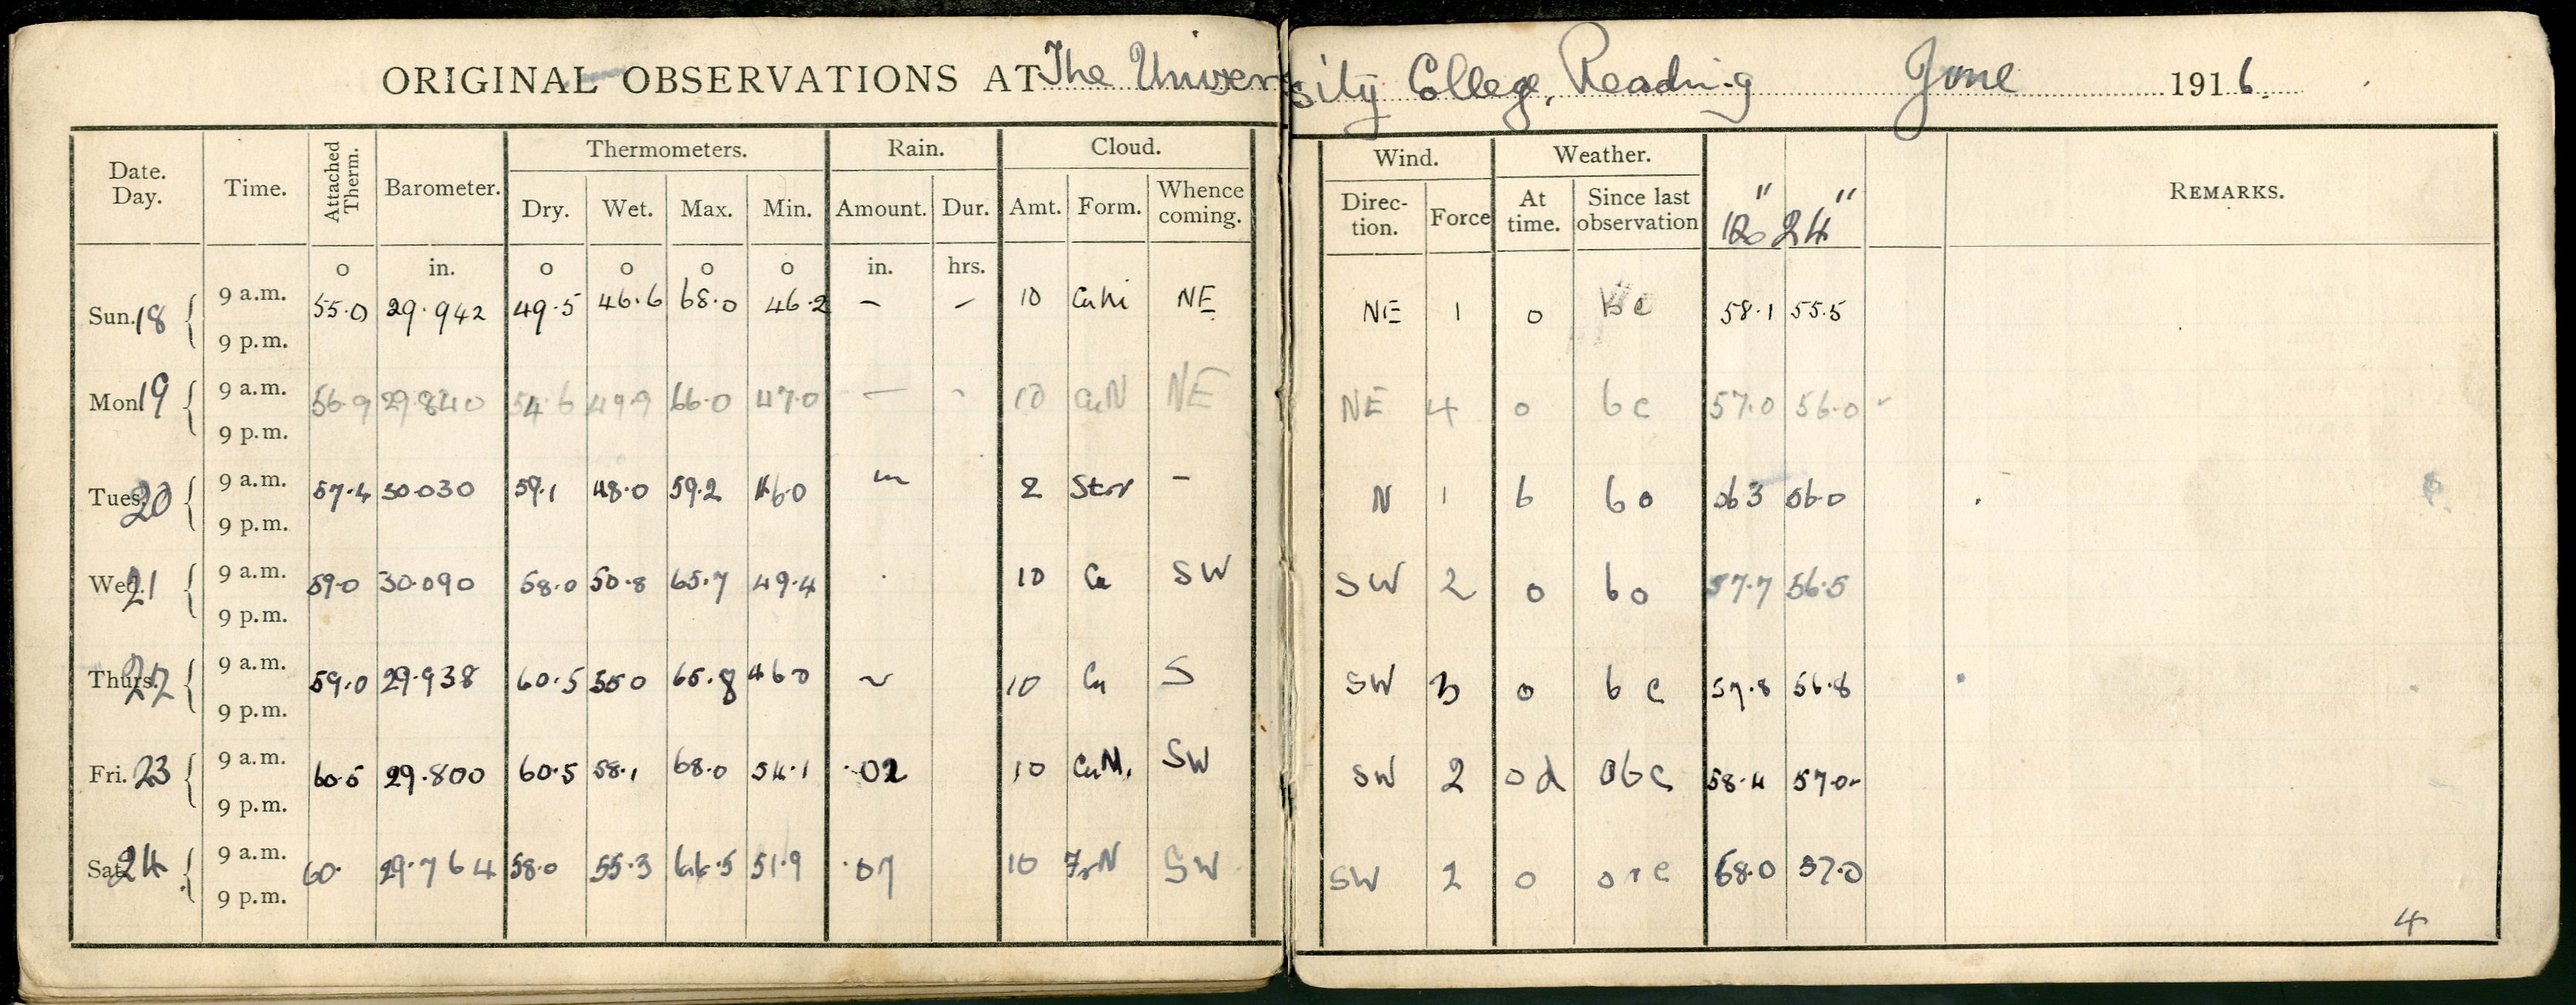 ORIGINAL OBSERVATIONS AT The University College, Reading June 1916.
Date. Day. Time. Attached Therm. Barometer. Thermometers. Rain. Cloud. Wind. Weather. 12" 24" REMARKS.
Dry. Wet. Max. Min. Amount. Dur. Amt. Form. Whence coming. Direc-tion. Force At time. Since last observation
o in. o o o o in. hrs.
Sun. 18 9 a.m. 55.0 29.942 49.5 46.6 68.0 46.2 – – 10 NE NE 1 o bc 58.1 55.5
9 p.m.
Mon 19 9 a.m. 56.9 29.840 54.6 49.9 66.0 47.0 — - 10 CuN NE NE 4 o bc 57.0 56.0
9 p.m.
Tues. 20 9 a.m. 57.4 30.030 59.1 48.0 59.2 46.0 2 – N 1 b bo 56.3 56.0
9 p.m.
Wed. 21 9 a.m. 59.0 30.090 58.0 50.8 65.7 49.4 10 Cu SW SW 2 o bo 57.7 56.5
9 p.m.
Thurs. 22 9 a.m. 59.0 29.938 60.5 55.0 65.8 46.0 ~ 10 Cu S SW 3 o bc 57.8 56.8
9 p.m.
Fri. 23 9 a.m. 60.5 29.800 60.5 58.1 68.0 54.1 .02 10 CuN. SW SW 2 od obc 58.4 57.0
9 p.m.
Sat. 24 9 a.m. 60. 29.764 58.0 55.3 66.5 51.9 .07 10 FrN SW SW 2 o orc 58.0 57.0
9 p.m.
4